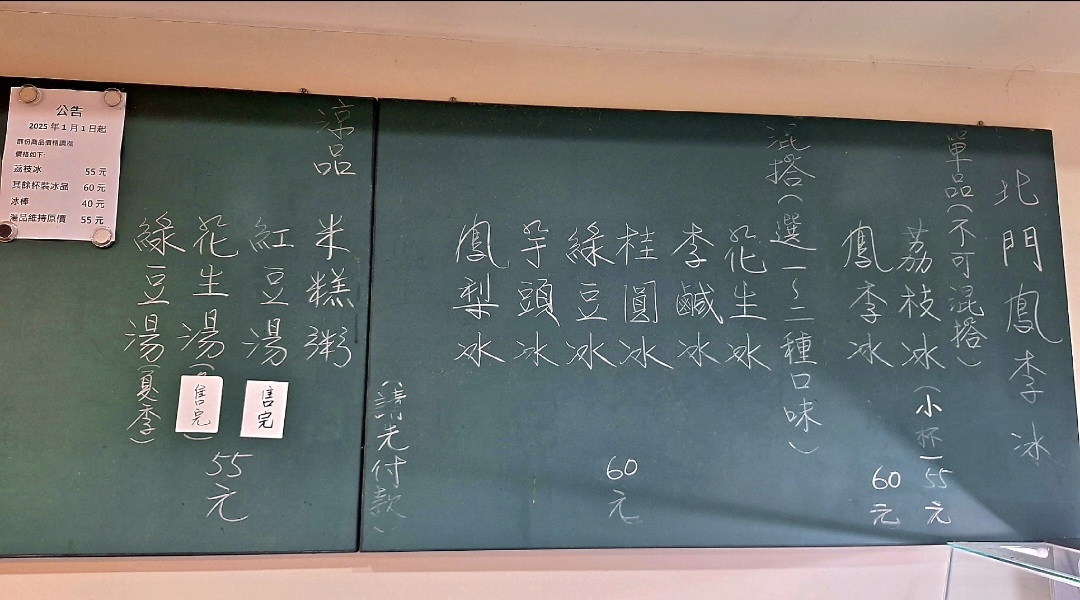 北門鳳李冰
單品(不可混搭)
荔枝冰(小杯)55元
鳳李冰 60元
混搭(選一~二種口味)
花生冰
李鹹冰
桂圓冰
綠豆冰
芋頭冰
鳳梨冰
60元
(請先付款)
涼品
米糕粥
紅豆湯
售完
花生湯
售完
綠豆湯(夏季)
55元
公告
2025年1月1日起
部份商品價格調漲
價格如下:
荔枝冰 55元
其餘杯裝冰品 60元
冰棒 40元
湯品維持原價 55元